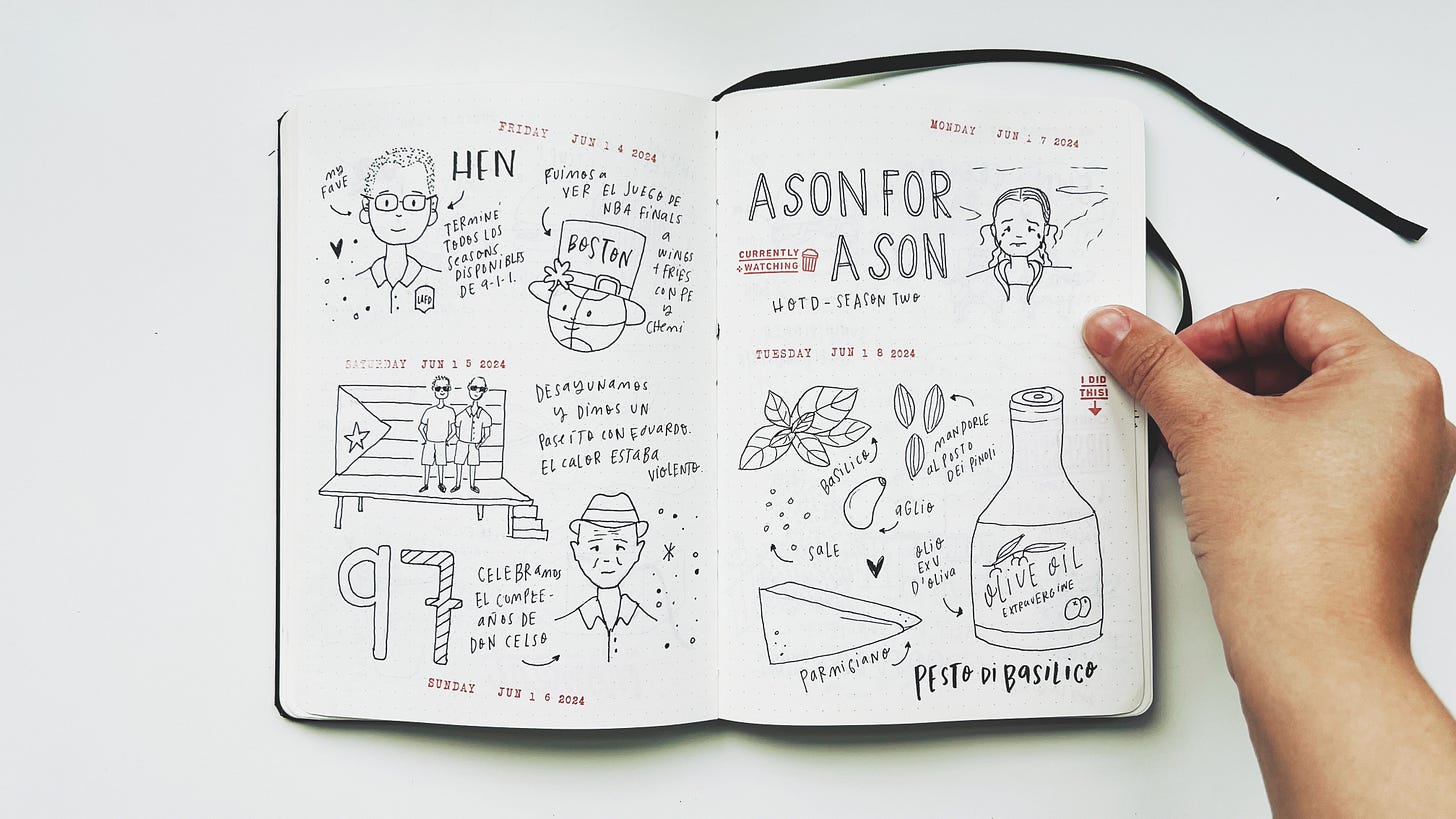 FRIDAY JUN 14 2024
my
FAVE
HEN
TERMINÉ
TODOS LOS
seasons
DISPONIBLES
DE 9-1-1.
LAFD
Fuimos a
VER EL JUEGO DE
NBA FINALS
a
WINGS
+ FRIES
CON PE
y
CHEMI
BOSTON
SATURDAY JUN 15 2024
DESAYUNAMOS
y DIMOS UN
PASEITO CON EDUARDO.
EL CALOR ESTABA
VIOLENTO.
97
CELEBRAMOS
EL CUMPLE-
AÑOS DE
DON CELSO
SUNDAY JUN 16 2024
MONDAY JUN 17 2024
A SON FOR
A SON
CURRENTLY
WATCHING
HOTD - SEASON TWO
TUESDAY JUN 18 2024
I DID
THIS!
BASILICO
MANDORLE
AL POSTO
DEI PINOLI
AGLIO
SALE
OLIO
EXV
D'OLIVA
OLIVE OIL
EXTRAVERGINE
PARMIGIANO
PESTO DI BASILICO